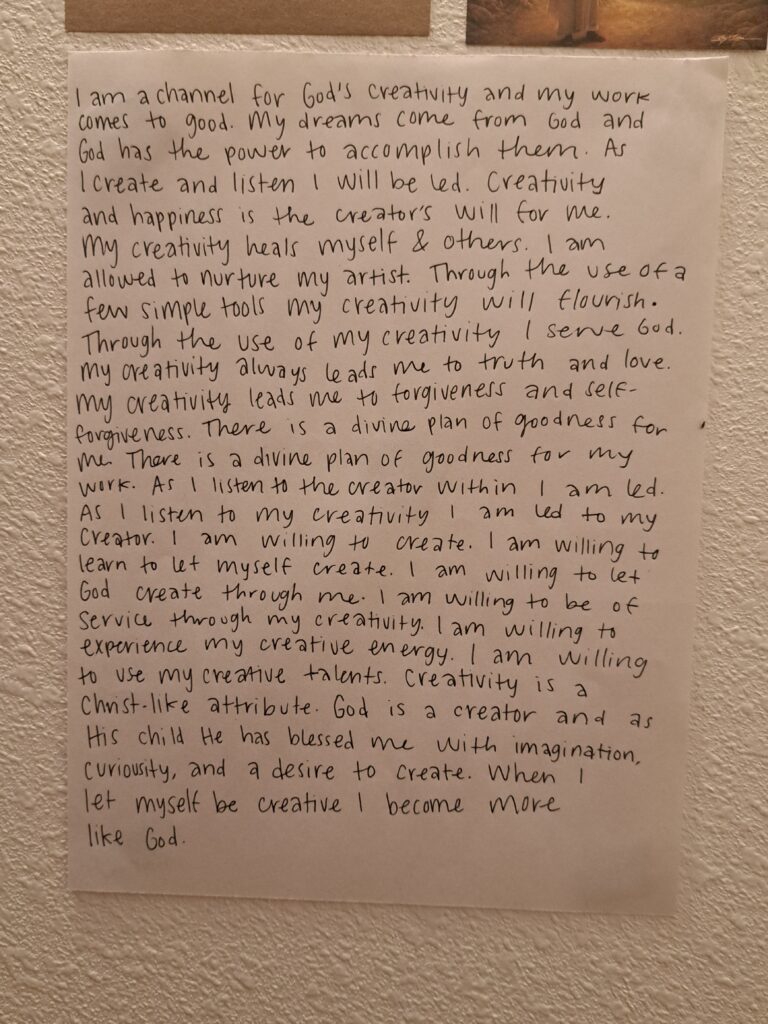 I am a channel for God's creativity and my work
comes to good. My dreams come from God and
God has the power to accomplish them. As
I create and listen I will be led. Creativity
and happiness is the creator's will for me.
My creativity heals myself & others. I am
allowed to nurture my artist. Through the use of a
few simple tools my creativity will flourish.
Through the use of my creativity I serve God.
My creativity always leads me to truth and love.
My creativity leads me to forgiveness and self-
forgiveness. There is a divine plan of goodness for
me. There is a divine plan of goodness for my
work. As I listen to the creator within I am led.
As I listen to my creativity I am led to my
Creator. I am willing to create. I am willing to
learn to let myself create. I am willing to let
God create through me. I am willing to be of
service through my creativity. I am willing to
experience my creative energy. I am willing
to use my creative talents. Creativity is a
Christ-like attribute. God is a creator and as
His child He has blessed me with imagination,
curiousity, and a desire to create. When I
let myself be creative I become more
like God.